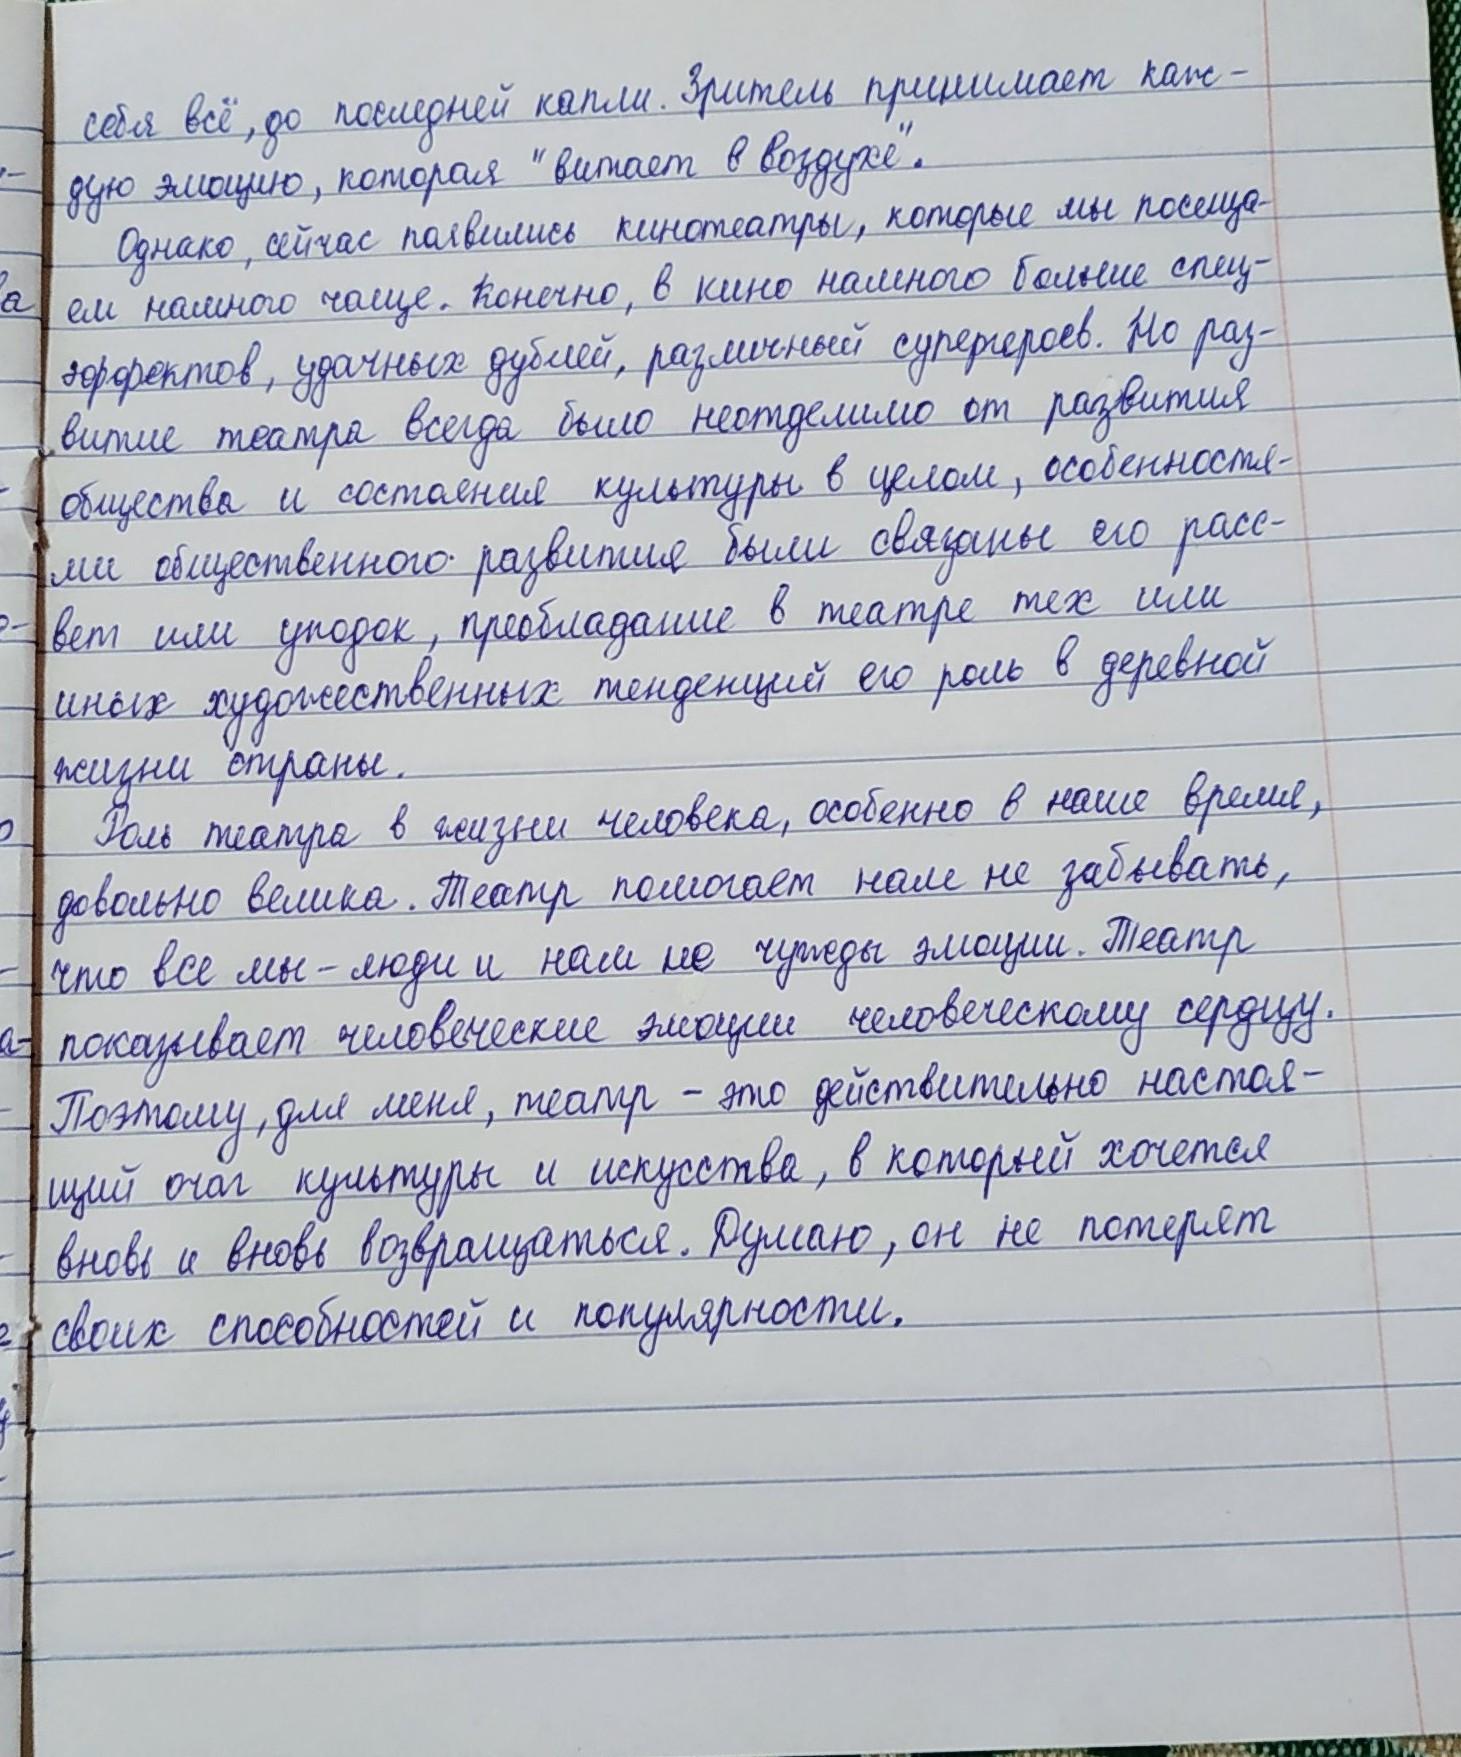 себя всё, до последней капли. Зритель принимает каж-
дую эмоцию, которая "витает в воздухе".
Однако, сейчас появились кинотеатры, которые мы посеща-
ем намного чаще. Конечно, в кино намного больше спец-
эффектов, удачных дублей, различный супергероев. Но раз-
витие театра всегда было неотделимо от развития
общества и состояния культуры в целом, особенностя-
ми общественного развития были связаны его расс-
вет или уподок, преобладание в театре тех или
иных художественных тенденций его роль в деревной
жизни страны.
Роль театра в жизни человека, особенно в наше время,
довольно велика. Театр помогает нам не забывать,
что все мы - люди и нам не чужды эмоции. Театр
показывает человеческие эмоции человеческому сердцу.
Поэтому, для меня, театр - это действительно настоя-
щий очаг культуры и искусства, в который хочется
вновь и вновь возвращаться. Думаю, он не потерят
своих способностей и популярности.